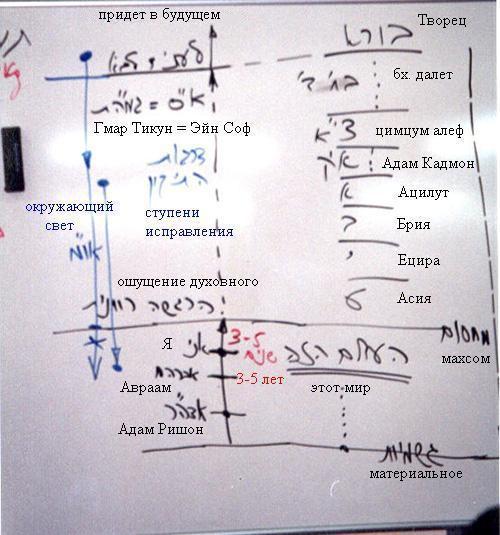 придет в будущем
Творец
בורא
לעתיד לבוא
בחי' ד'
бх. далет
א"ס = גמה"ת
Гмар Тикун = Эйн Соф
צ"א
цимцум алеф
דרגות
התיקון
א"ק
Адам Кадмон
א
Ацилут
окружающий
свет
ступени
исправления
ב
Брия
או"מ
י
Ецира
ощущение духовного
הרגשה רוחנית
ע
Асия
מחסום
махсом
Я
אני
3-5
שנים
העולם הזה
אברהם
3-5 лет
Авраам
этот мир
אדה"ר
Адам Ришон
גשמיות
материальное